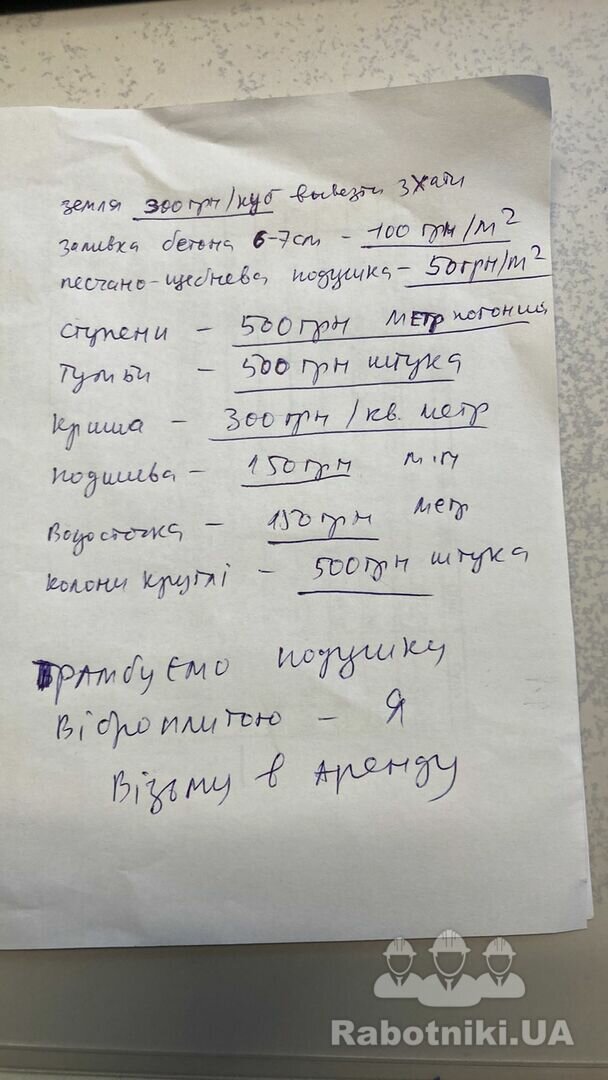 земля 300грн/куб вывезти з хати
заливка бетона 6-7см - 100грн/м²
песчано-щебнева подушка - 50грн/м²
ступени - 500грн метр погоний
Тумбы - 500грн штука
Криша - 300грн/кв. метр
подшива - 150грн м.п
Водосточка - 150грн метр
колони круглі - 500грн штука
Трамбуємо подушку
Віброплитою - Я
Візьму в аренду
Rabotniki.UA